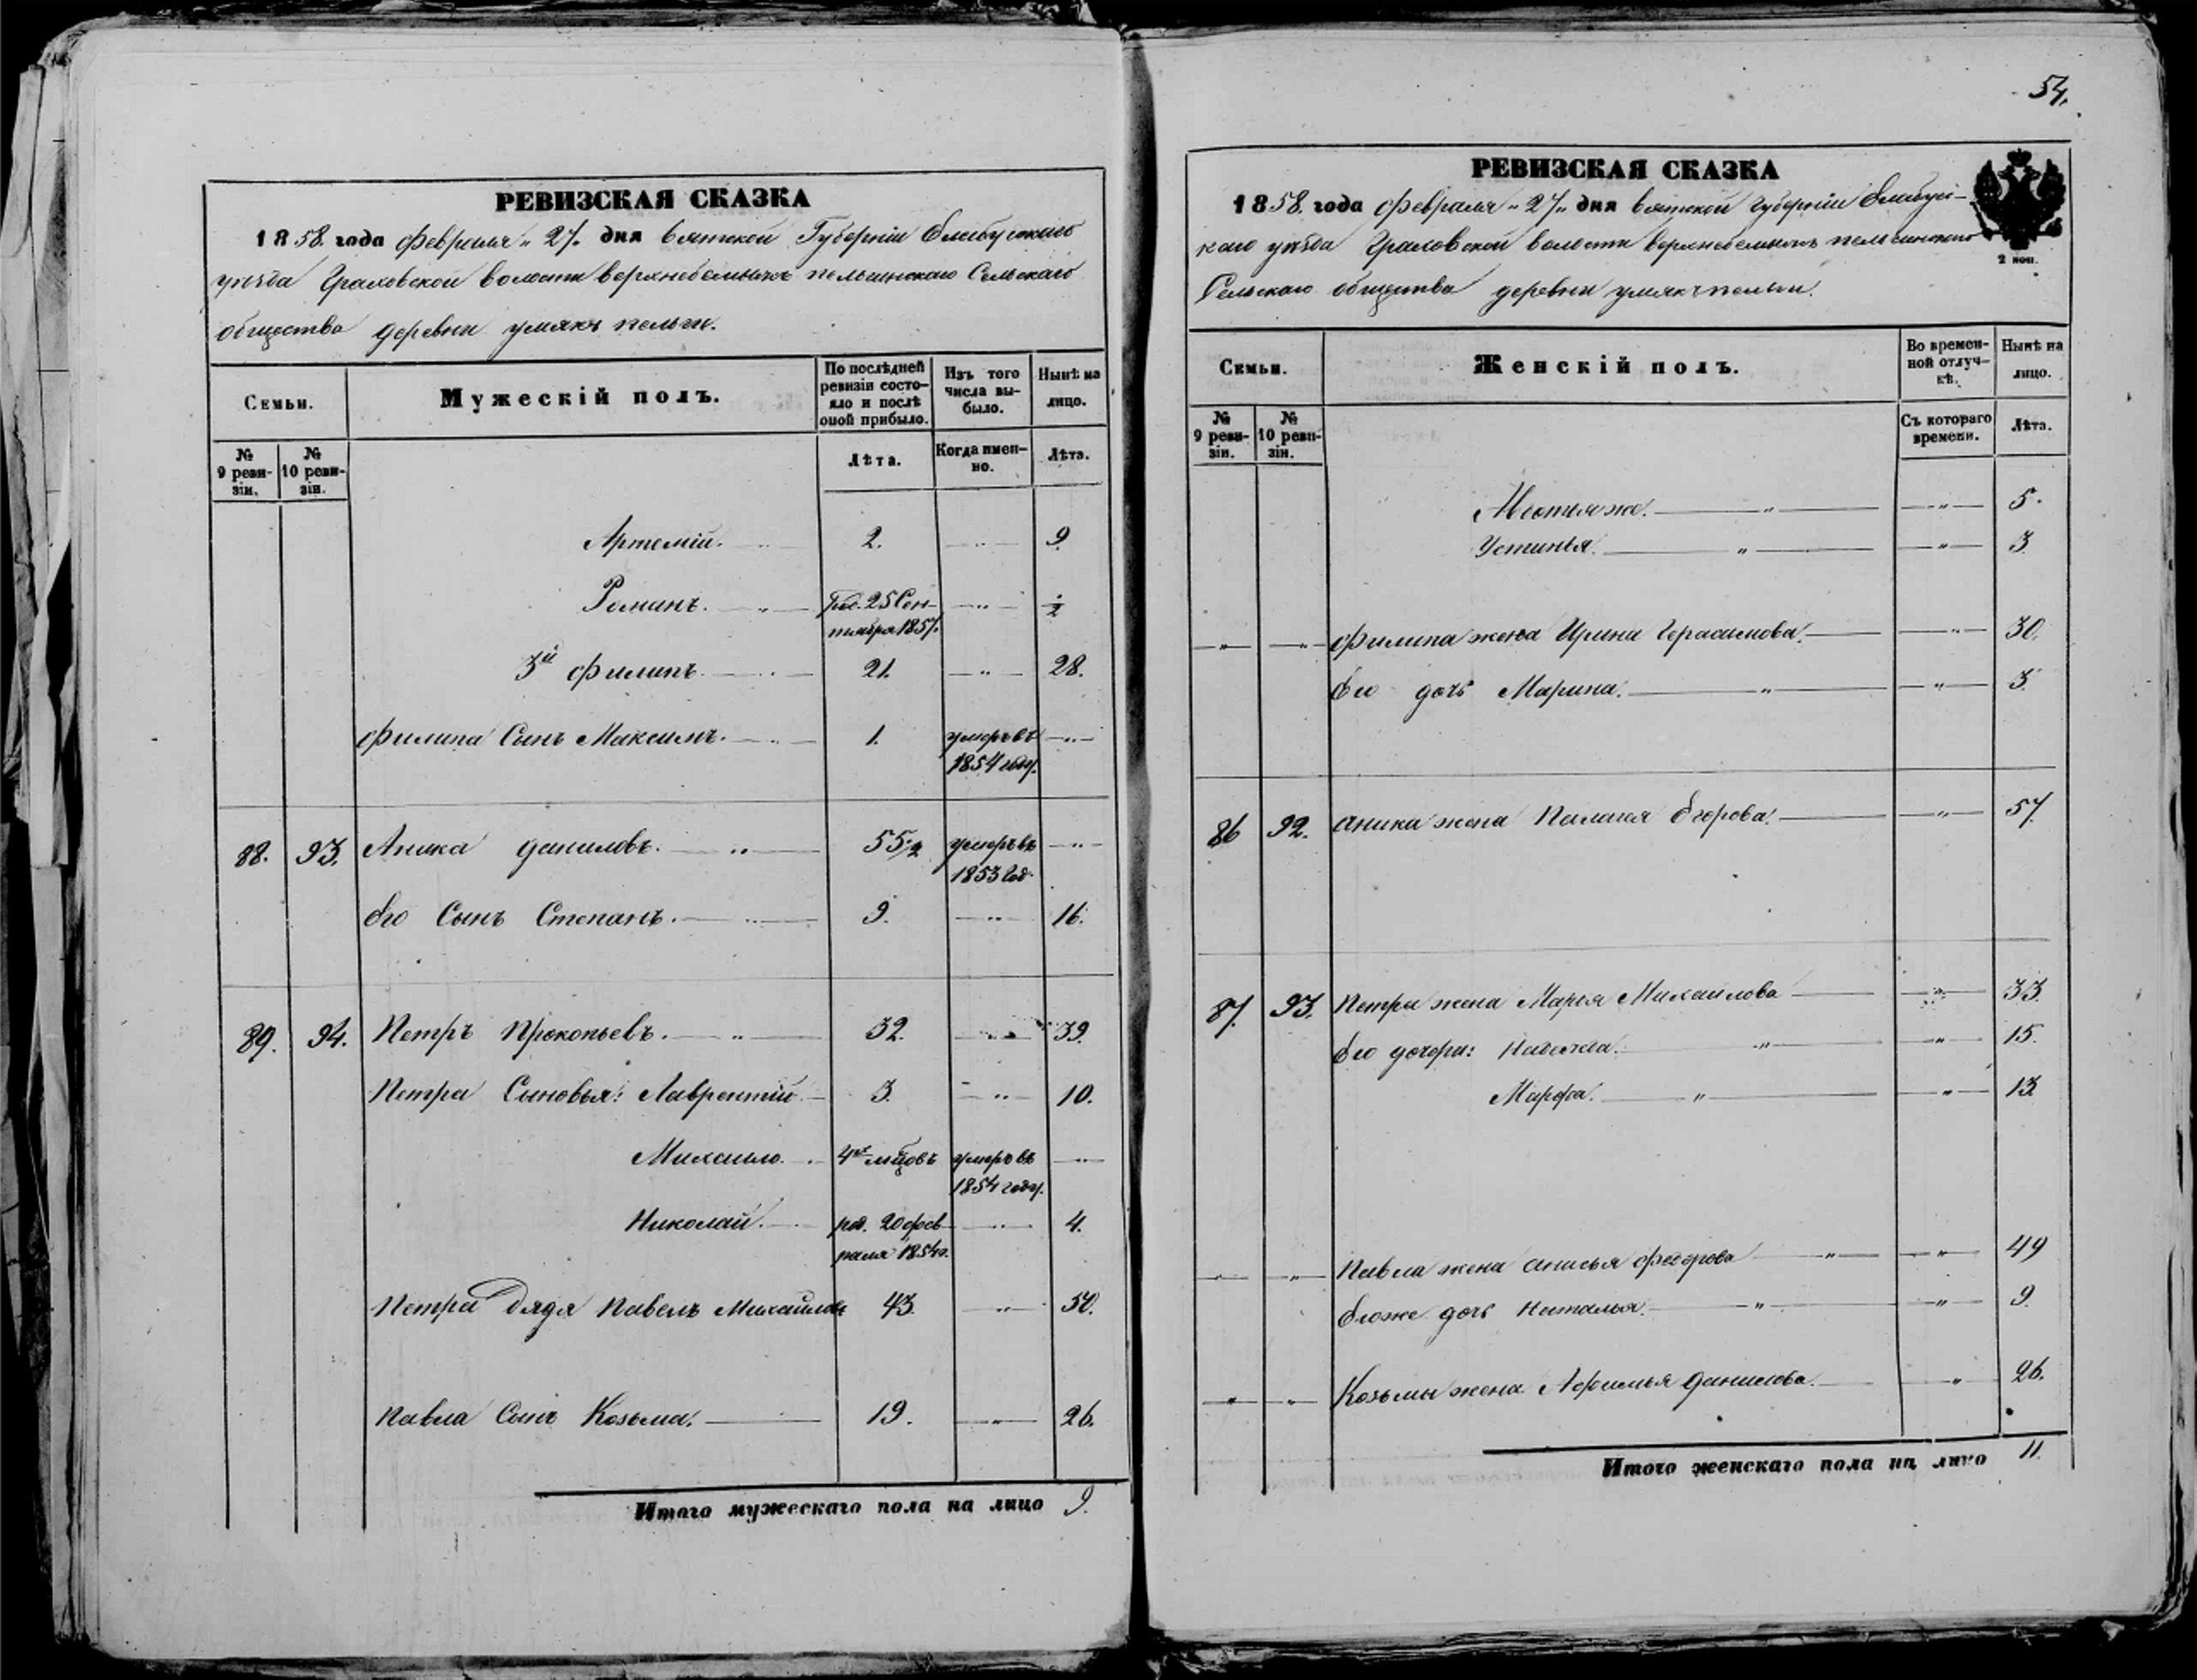 РЕВИЗСКАЯ СКАЗКА
1858. года Февраля „ 27. дня Вятской Губерніи Елабужскаго
уѣзда Граховской волости Сельскаго
общества деревни умякъ пельги.
Семьи.
Мужескій полъ.
По послѣдней ревизіи состояло и послѣ оной прибыло.
Изъ того числа выбыло.
Нынѣ на лицо.
№ 9 ревизіи.
№ 10 ревизіи.
Лѣта.
Когда именно.
Лѣта.
Артемій. 2. 9.
Романъ. 25 Сентября 1857. ½
3й Филипъ. 21. 28.
Филипа Сынъ Максимъ. 1. умеръ въ 1854 году.
88. 93. Аника Даниловъ. 55/2 умеръ въ 1853 год
Его Сынъ Степанъ. 9. 16.
89. 94. Петръ Прокопьевъ. 32. 39.
Петра Сыновья: Лаврентій. 3. 10.
Михаило. 4хъ мцовъ умеръ въ 1854 году.
Николай. род. 20 Февраля 1854 г. 4.
Петра Дядя Павелъ Михайловъ 43. 50.
Павла Сынъ Козьма. 19. 26.
Итого мужескаго пола на лицо 9.
54.
РЕВИЗСКАЯ СКАЗКА
1858. года Февраля „ 27 „ дня Вятской Губерніи
каго уѣзда Граховской волости
Сельскаго общества деревни умякъ пельги.
2 коп.
Семьи.
Женскій полъ.
Во временной отлучкѣ.
Нынѣ на лицо.
№ 9 ревизіи.
№ 10 ревизіи.
Съ котораго времени.
Лѣта.
5.
Устинья. 3.
Филипа жена Ирина Герасимова. 30.
Его дочь Марина. 3.
86 92. Аника жена Палагея Егорова. 57.
87. 93. Петра жена Марья Михайлова 33.
Его дочери: Надежда. 15.
Марфа. 13.
Павла жена Анисья Федорова 49
Егоже дочь Наталья. 9.
Козьмы жена Афимья Данилова. 26.
Итого женскаго пола на лицо 11.